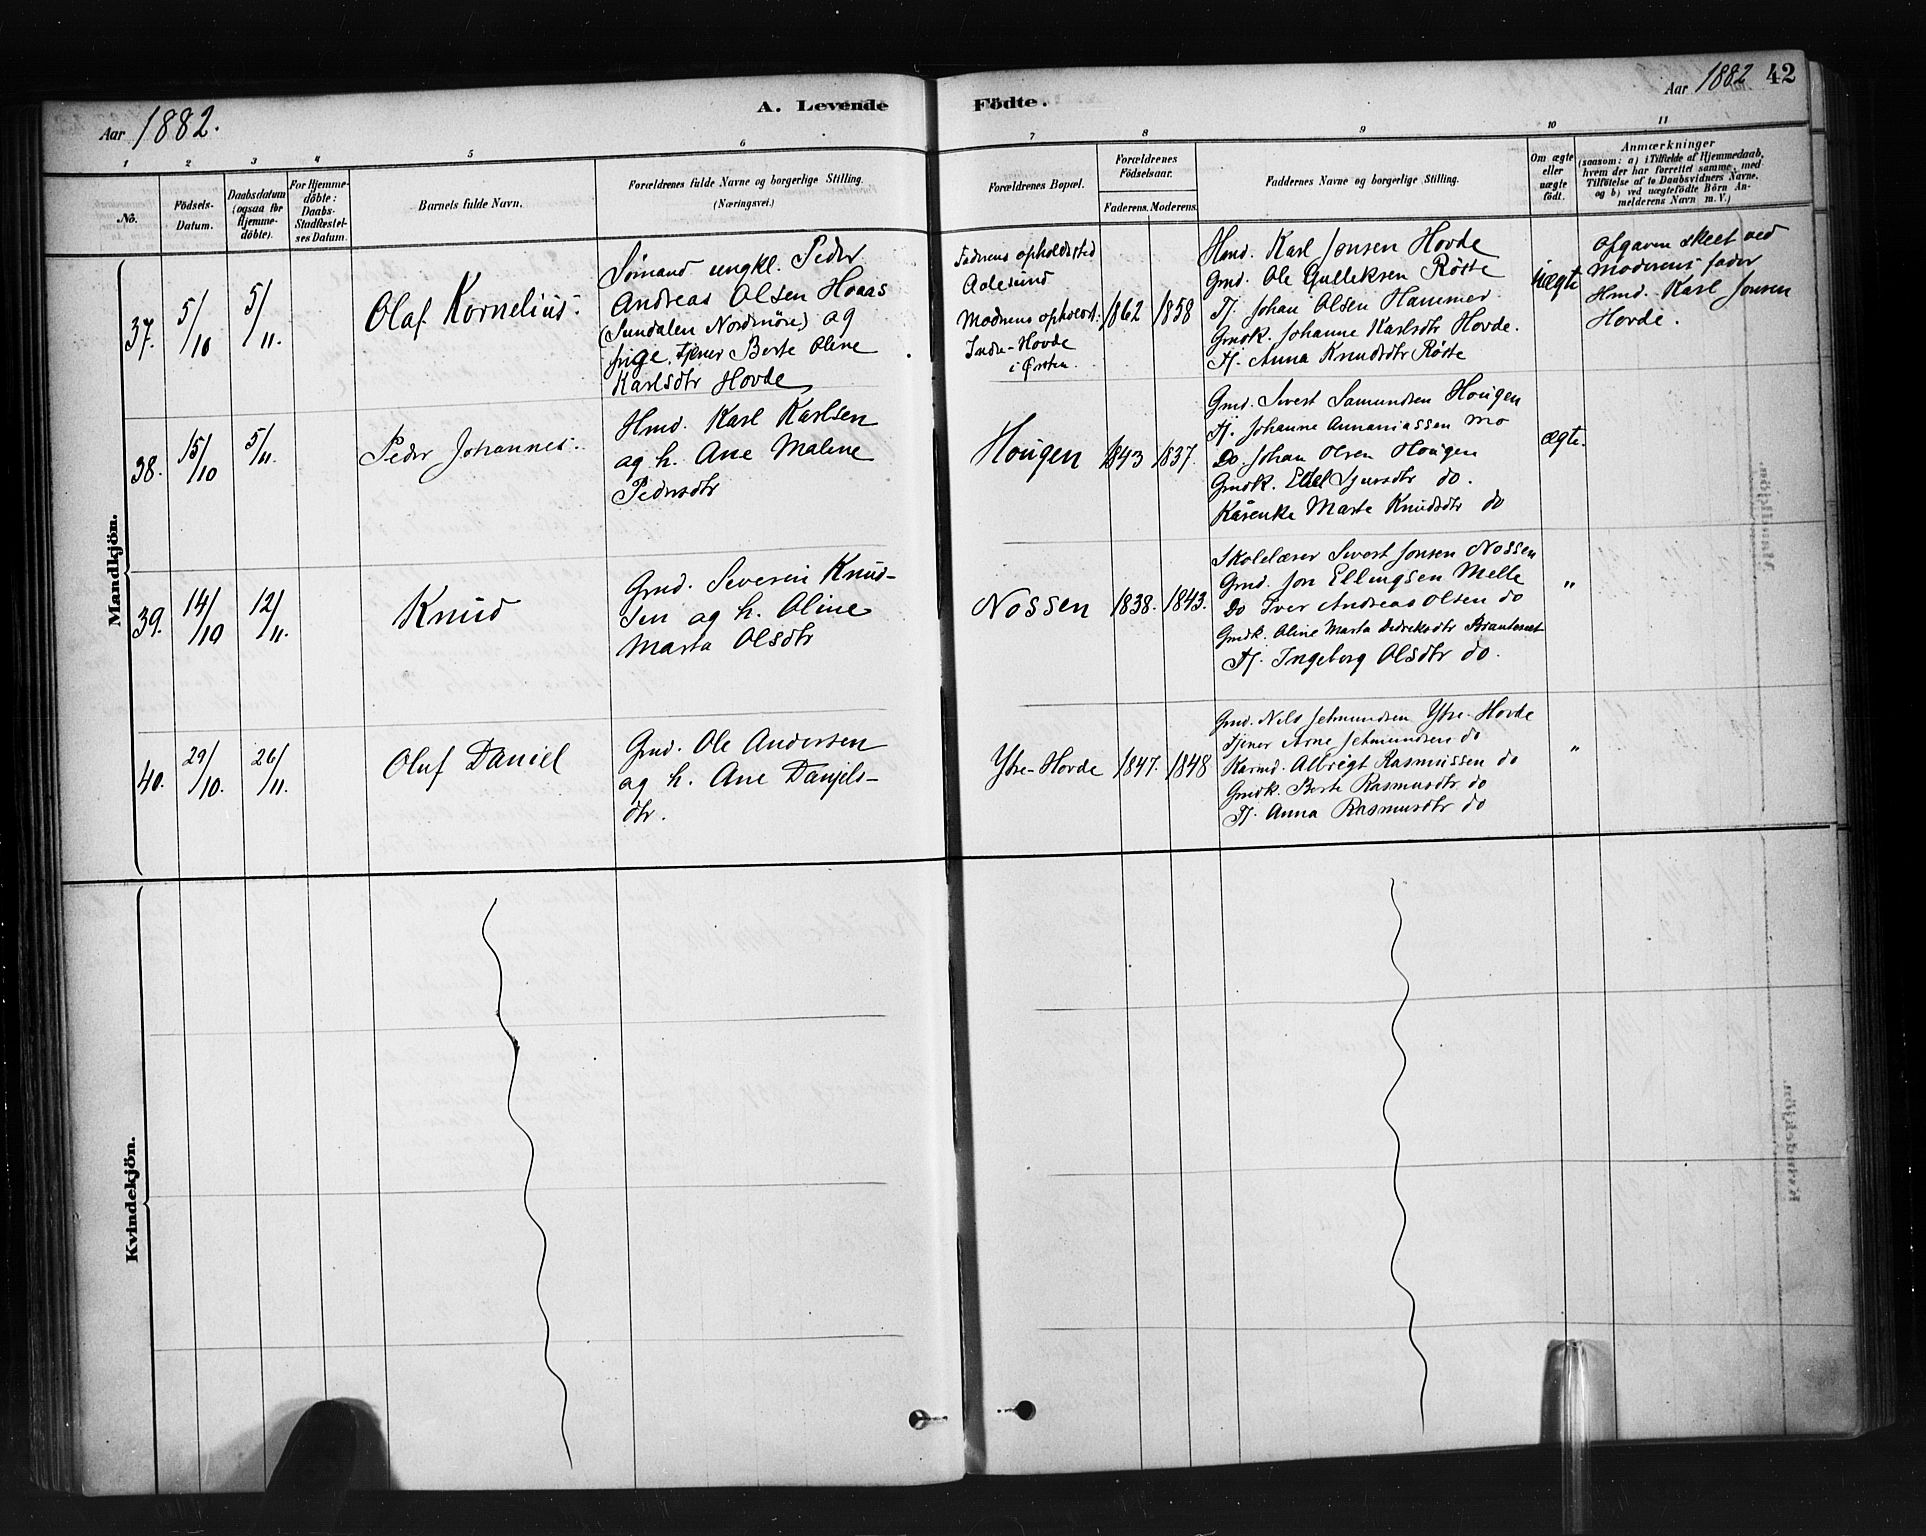 Aar 1882.
A. Levende
Födte.
Aar 1882
42
1
2
3
4
5
6
7
8
9
10
11
No.
Födsels-
Datum.
Daabsdatum
(ogsaa for
Hjemme-
döbte).
For Hjemme-
döbte:
Daabs-
Stadfæstel-
ses Datum.
Barnets fulde Navn.
Forældrenes fulde Navne og borgerlige Stilling.
(Næringsvei.)
Forældrenes Bopæl.
Forældrenes
Födselsaar.
Faderens. Moderens.
Faddernes Navne og borgerlige Stilling.
Om ægte
eller
uægte
födt.
Anmærkninger
(saasom: a) i Tilfælde af Hjemmedaab,
hvem der har forrettet samme, med
Tilföielse af to Daabsvidners Navne,
og b) ved uægtefödte Börn An-
melderens Navn m. V.)
Mandkjön.
37.
5/10
5/11.
Olaf Kornelius.
Sømand ungkl. Peder
Andreas Olsen Hoaas
(Sundalen Nordmøre) og
pige, tjener Berte Oline
Karlsdtr Hovde
Fadrens opholdssted
Aalesund
Modrens opholdst:
Indre-Hovde
i Ørsten.
1862
1858
Hmd. Karl Jonsen Hovde
Gmd. Ole Gulleksen Röste
Tj. Johan Olsen Hammer
Gmdk. Johanne Karlsdtr Hovde.
Tj. Anna Knudsdtr Röste
uægte
Opgaven skeet ved
Moderens fader
Hmd. Karl Jonsen
Hovde.
38.
15/10
5/11.
Peder Johannes.
Hmd. Karl Karlsen
og h. Ane Malene
Pedersdtr
Hougen
1843
1837.
Gmd. Sivert Samundsen Hougen
Tj. Johanne Annaniassen Mo
Do. Johan Olsen Hougen
Gmdk. Ellel Sjursdtr do.
Kårenke Marte Knudsdtr do
ægte.
39.
14/10
12/11.
Knud
Gmd. Severin Knud-
sen og h. Oline
Marta Olsdtr
Nossen
1838.
1843.
Skolelærer Sivert Jonsen Nossen
Gmd. Jon Ellingsen Melle
Do Iver Andreas Olsen do
Gmdk. Oline Marta Didriksdtr
Tj. Ingeborg Olsdtr do.
"
40.
29/10.
26/11.
Oluf Daniel
Gmd. Ole Andersen
og h. Ane Danjels-
dtr.
Ytre-Hovde
1847.
1848
Gmd. Nils Jetmundsen Ytre-Hovde
Tjener Arne Jetmundsen do
Karmd. Albrigt Rasmussen do
Gmdk. Berte Rasmusdtr do
Tj. Anna Rasmusdtr do
"
Kvindekjön.